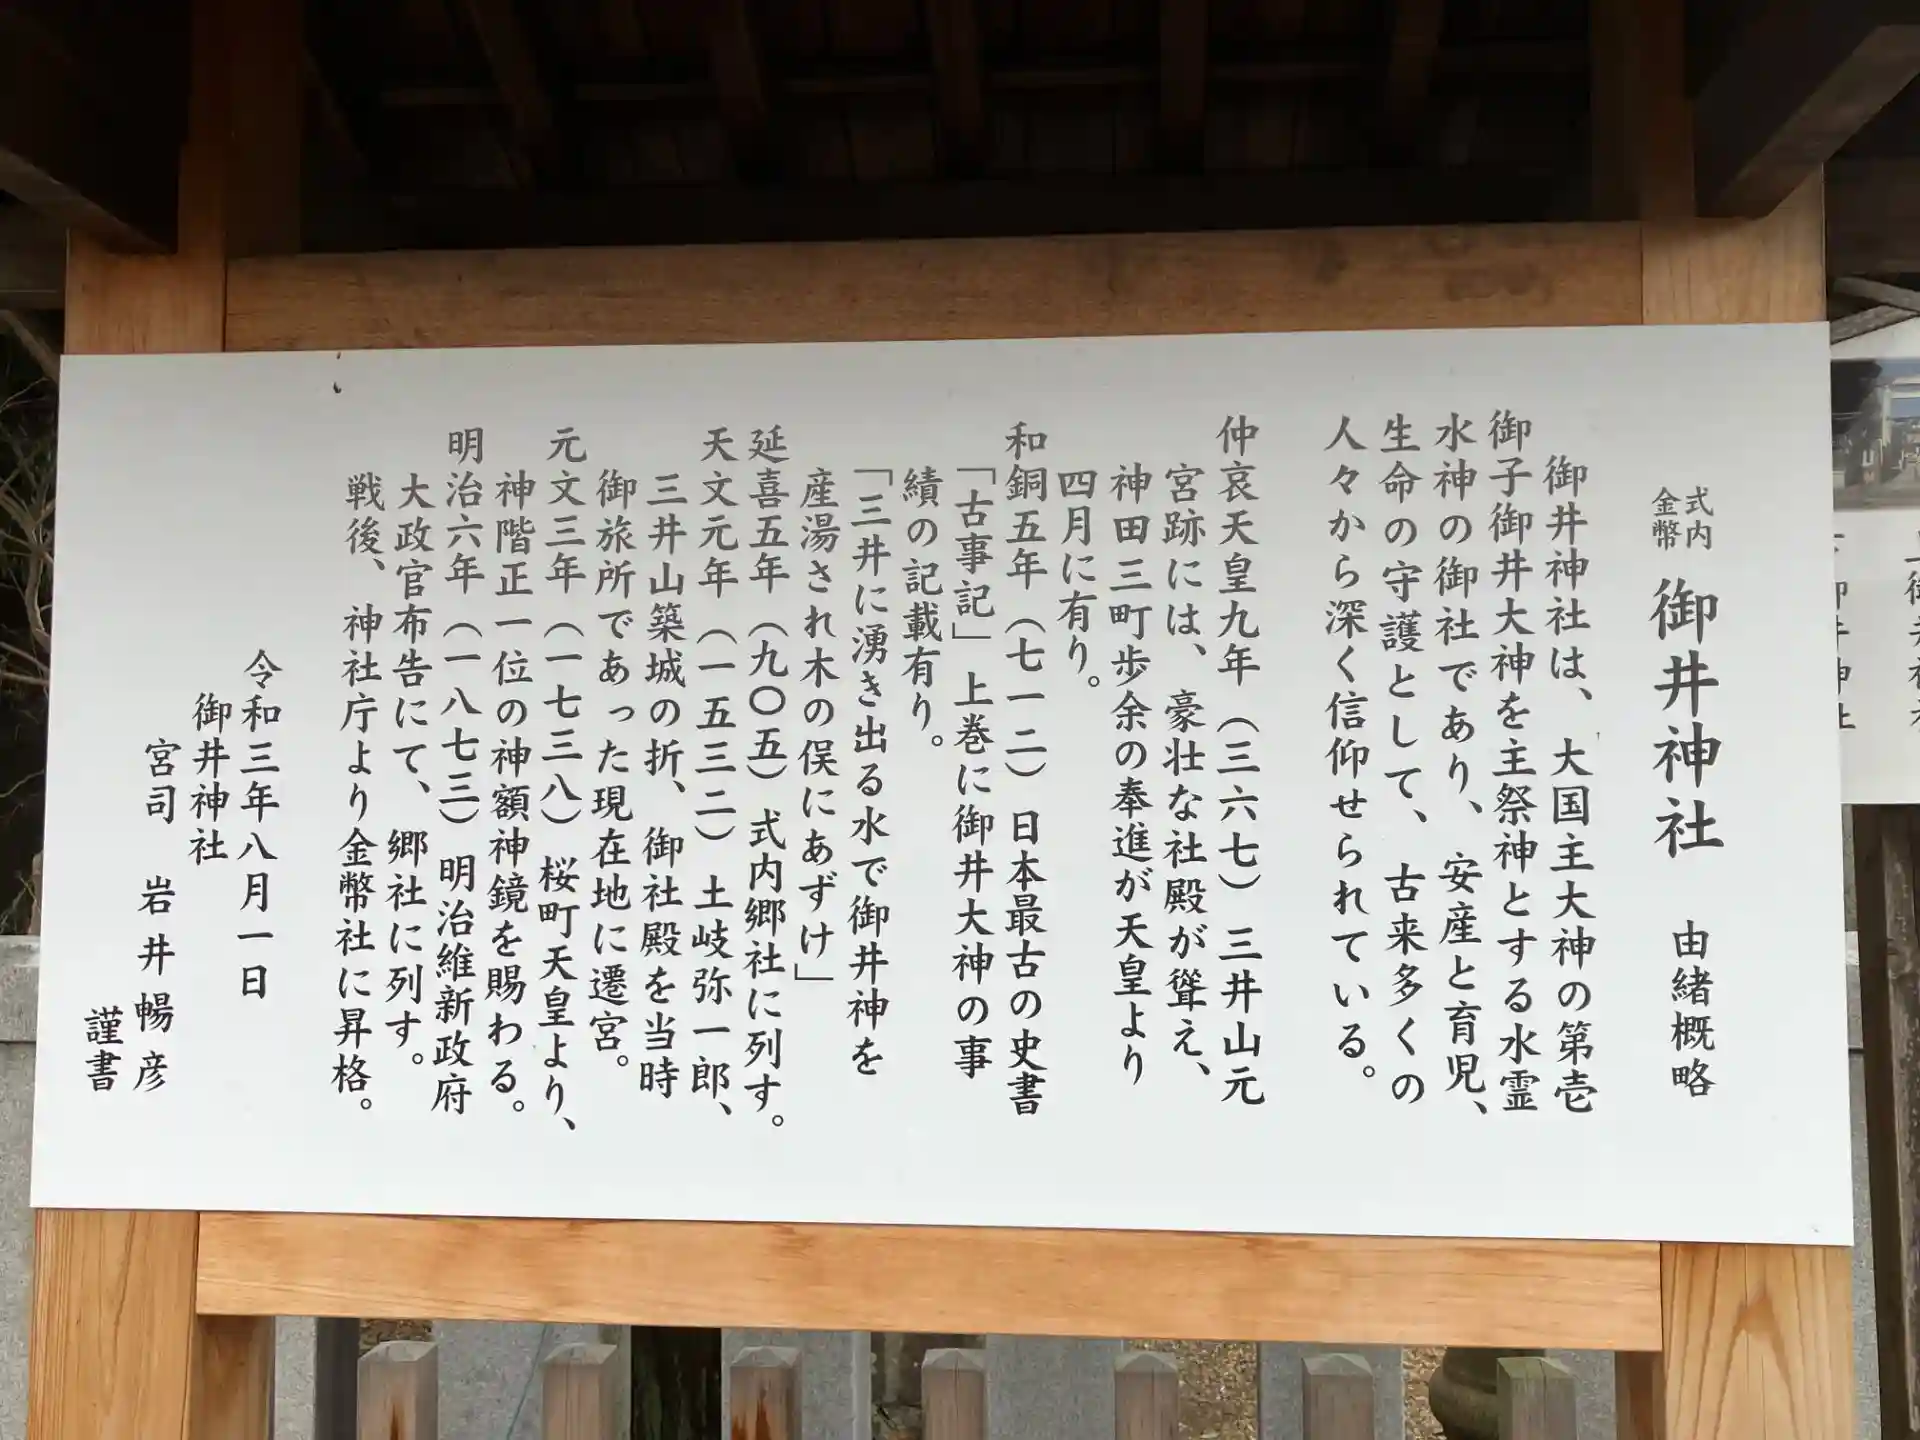 式内
金幣
御井神社　由緒概略
御井神社は、大国主大神の第壱
御子御井大神を主祭神とする水霊
水神の御社であり、安産と育児、
生命の守護として、古来多くの
人々から深く信仰せられている。
仲哀天皇九年（三六七）三井山元
宮跡には、豪壮な社殿が聳え、
神田三町歩余の奉進が天皇より
四月に有り。
和銅五年（七一二）日本最古の史書
「古事記」上巻に御井大神の事
績の記載有り。
「三井に湧き出る水で御井神を
産湯され木の俣にあずけ」
延喜五年（九〇五）式内郷社に列す。
天文元年（一五三二）土岐弥一郎、
三井山築城の折、御社殿を当時
御旅所であった現在地に遷宮。
元文三年（一七三八）桜町天皇より、
神階正一位の神額神鏡を賜わる。
明治六年（一八七三）明治維新政府
大政官布告にて、郷社に列す。
戦後、神社庁より金幣社に昇格。
令和三年八月一日
御井神社
宮司　岩井暢彦
謹書